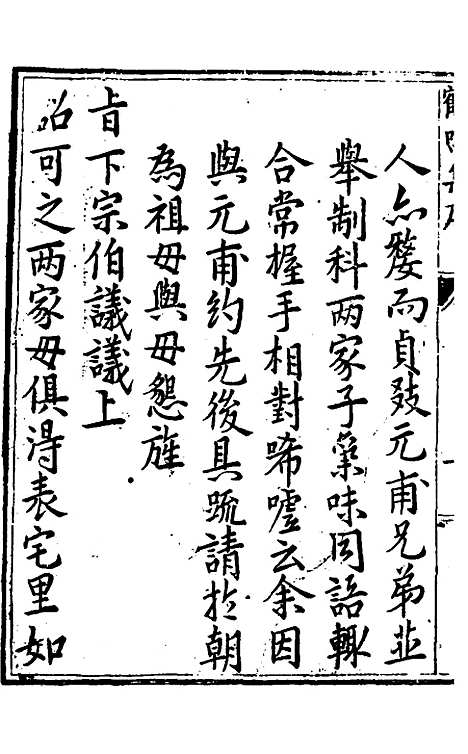 人亦嫠而貞爻元甫兄弟並
舉制科两家子臭味同語輙
合常握手相對唏嘘云余因
與元甫約先後具疏請扵朝
為祖母與母懇旌
旨下宗伯議議上
詔可之两家母俱淂表宅里如